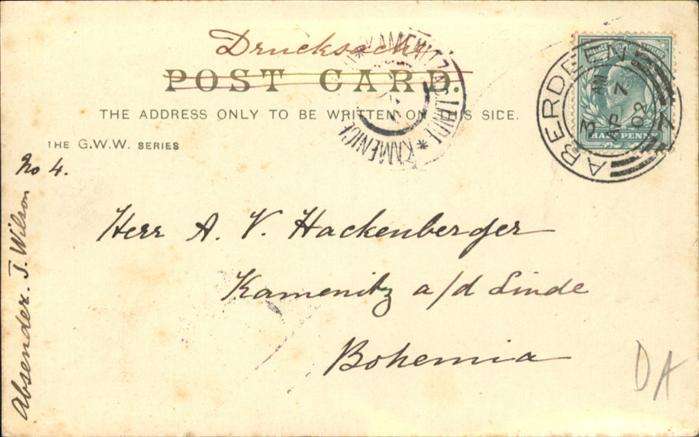 Drucksache
POST CARD.
THE ADDRESS ONLY TO BE WRITTEN ON THIS SIDE.
THE G.W.W. SERIES
No 4.
Absender. J. Wilson
Herr A. V. Hackenberger
Kamenitz a/d Linde
Bohemia
DA
ABERDEEN
HALF PENNY
KAMENICE